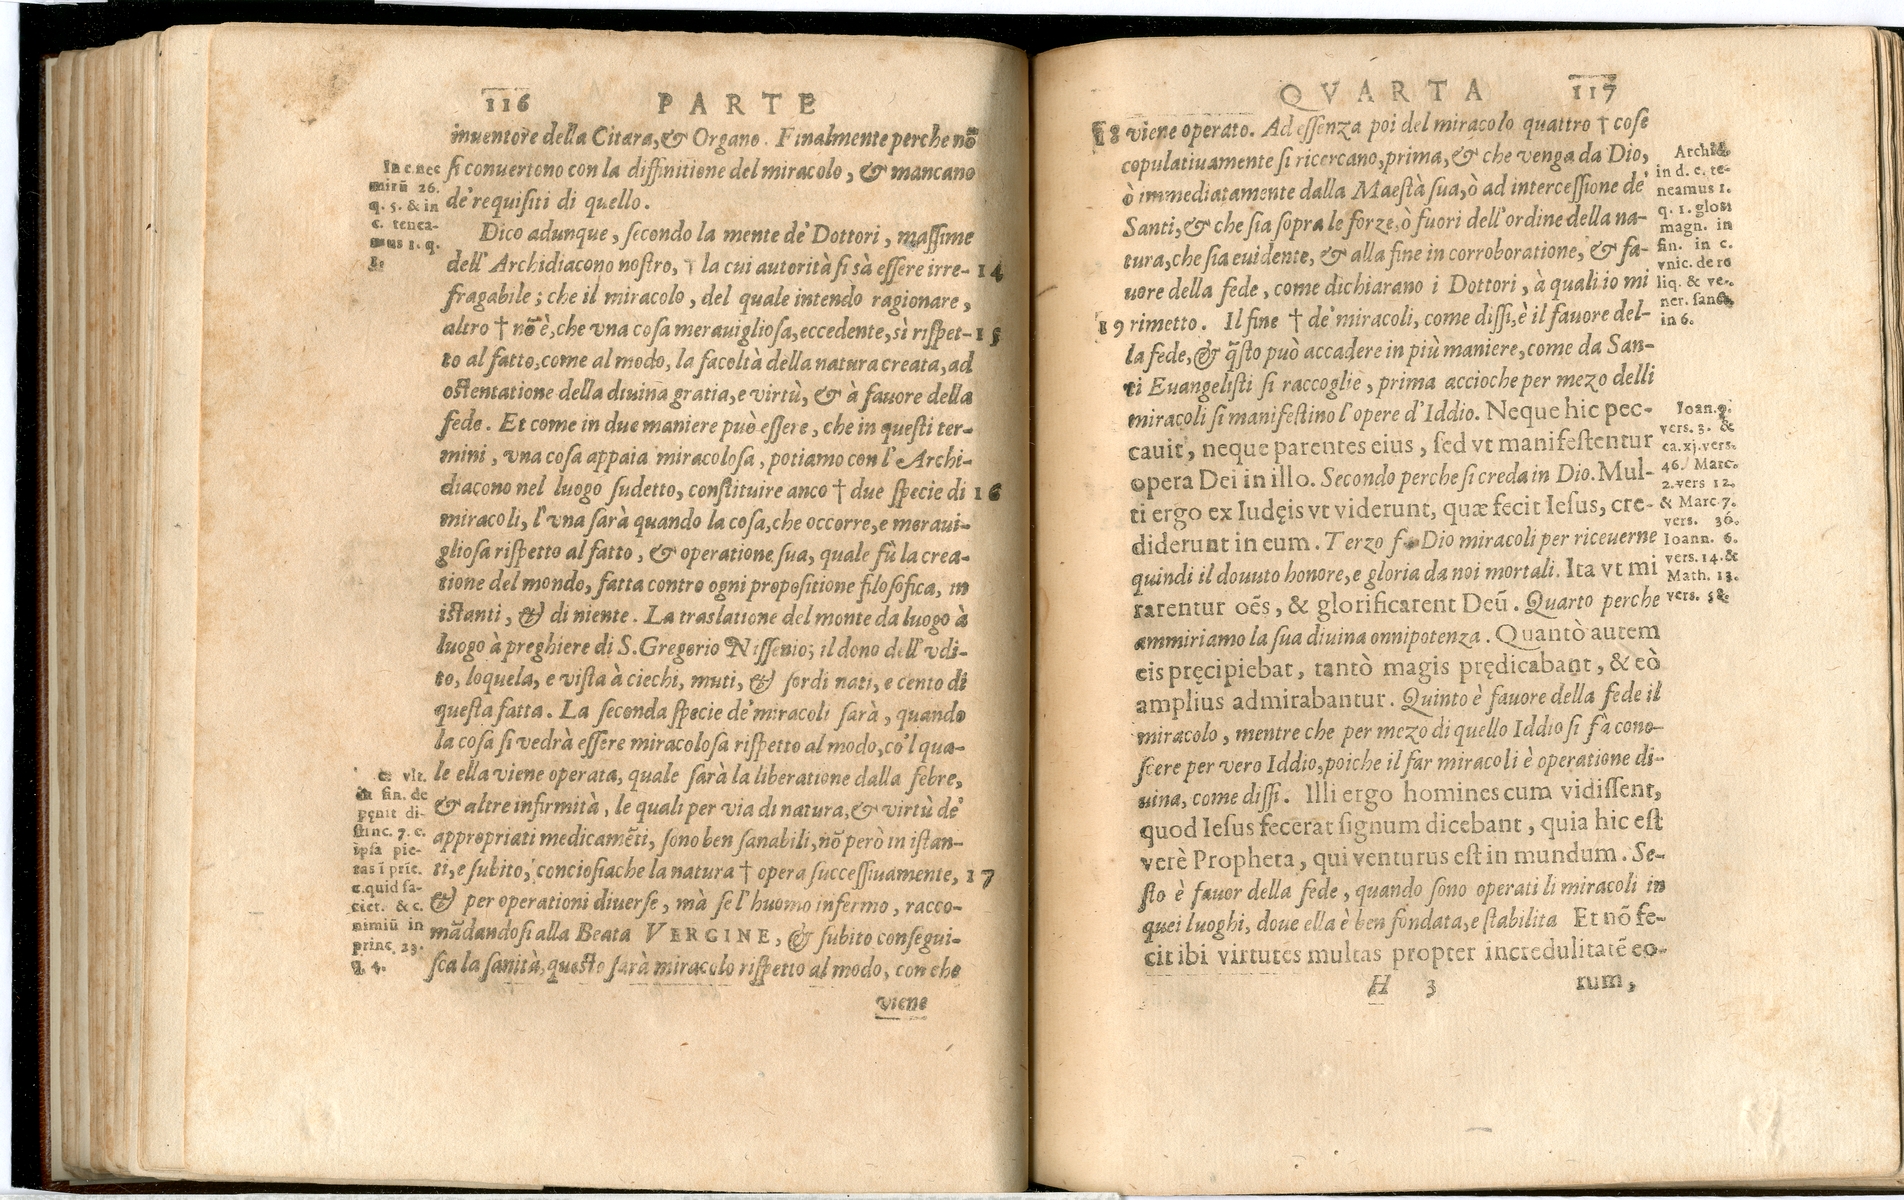 116 PARTE
inuentore della Citara, & Organo. Finalmente perche nō
si conuertono con la diffinitione del miracolo, & mancano
de' requisiti di quello.
Dico adunque, secondo la mente de' Dottori, massime
dell' Archidiacono nostro, † la cui autorità si sà essere irre- 14
fragabile; che il miracolo, del quale intendo ragionare,
altro † nō è, che vna cosa merauigliosa, eccedente, sì rispet- 15
to al fatto, come al modo, la facoltà della natura creata, ad
ostentatione della diuina gratia, e virtù, & à fauore della
fede. Et come in due maniere può essere, che in questi ter-
mini, vna cosa appaia miracolosa, potiamo con l' Archi-
diacono nel luogo sudetto, constituire anco † due specie di 16
miracoli, l'vna sarà quando la cosa, che occorre, e meraui-
gliosa rispetto al fatto, & operatione sua, quale fù la crea-
tione del mondo, fatta contro ogni propositione filosofica, in
istanti, & di niente. La traslatione del monte da luogo à
luogo à preghiere di S. Gregorio Nissenio; il dono dell' vdi-
to, loquela, e vista à ciechi, muti, & sordi nati, e cento di
questa fatta. La seconda specie de' miracoli sarà, quando
la cosa si vedrà essere miracolosa rispetto al modo, co'l qua-
le ella viene operata, quale sarà la liberatione dalla febre,
& altre infirmità, le quali per via di natura, & virtù de'
appropriati medicamēti, sono ben sanabili, nō però in istan-
ti, e subito, conciosiache la natura † opera successiuamente, 17
& per operationi diuerse, mà se l' huomo infermo, racco-
mādandosi alla Beata VERGINE, & subito consegui-
sca la sanità, questo sarà miracolo rispetto al modo, con che
viene
In c. nec
mirū 26.
q. 5. & in
c. tenea-
mus 1. q.
8.
C. vlt.
in fin. de
pęnit di-
stinc. 7. c.
ipsa pie-
tas ī prīc.
c. quid fa-
ciet. & c.
nimiū in
princ. 23.
q. 4.
QVARTA 117
18 viene operato. Ad essenza poi del miracolo quattro † cose
copulatiuamente si ricercano, prima, & che venga da Dio,
ò immediatamente dalla Maestà sua, ò ad intercessione de'
Santi, & che sia sopra le forze, ò fuori dell' ordine della na-
tura, che sia euidente, & alla fine in corroboratione, & fa-
uore della fede, come dichiarano i Dottori, à quali io mi
19 rimetto. Il fine † de' miracoli, come dissi, è il fauore del-
la fede, & q̄sto può accadere in più maniere, come da San-
ti Euangelisti si raccoglie, prima accioche per mezo delli
miracoli si manifestino l'opere d'Iddio. Neque hic pec-
cauit, neque parentes eius, sed vt manifestentur
opera Dei in illo. Secondo perche si creda in Dio. Mul-
ti ergo ex Iudęis vt viderunt, quæ fecit Iesus, cre-
diderunt in eum. Terzo Dio miracoli per riceuerne
quindi il douuto honore, e gloria da noi mortali. Ita vt mi
rarentur oēs, & glorificarent Deū. Quarto perche
ammiriamo la sua diuina onnipotenza. Quantò autem
eis pręcipiebat, tantò magis prędicabant, & eò
amplius admirabantur. Quinto è fauore della fede il
miracolo, mentre che per mezo di quello Iddio si fà cono-
scere per vero Iddio, poiche il far miracoli è operatione di-
uina, come dissi. Illi ergo homines cum vidissent,
quod Iesus fecerat signum dicebant, quia hic est
verè Propheta, qui venturus est in mundum. Se-
sto è fauor della fede, quando sono operati li miracoli in
quei luoghi, doue ella è ben fondata, e stabilita Et nō fe-
cit ibi virtutes multas propter incredulitatē eo-
H 3 rum,
Archid.
in d. c. te-
neamus 1.
q. 1. glos
magn. in
fin. in c.
vnic. de re
liq. & ve-
ner. sanct.
in 6.
Ioan. 9.
vers. 3. &
ca. xj. vers.
46. Marc.
2. vers 12.
& Marc. 7.
vers. 36.
Ioann. 6.
vers. 14. &
Math. 13.
vers. 58.